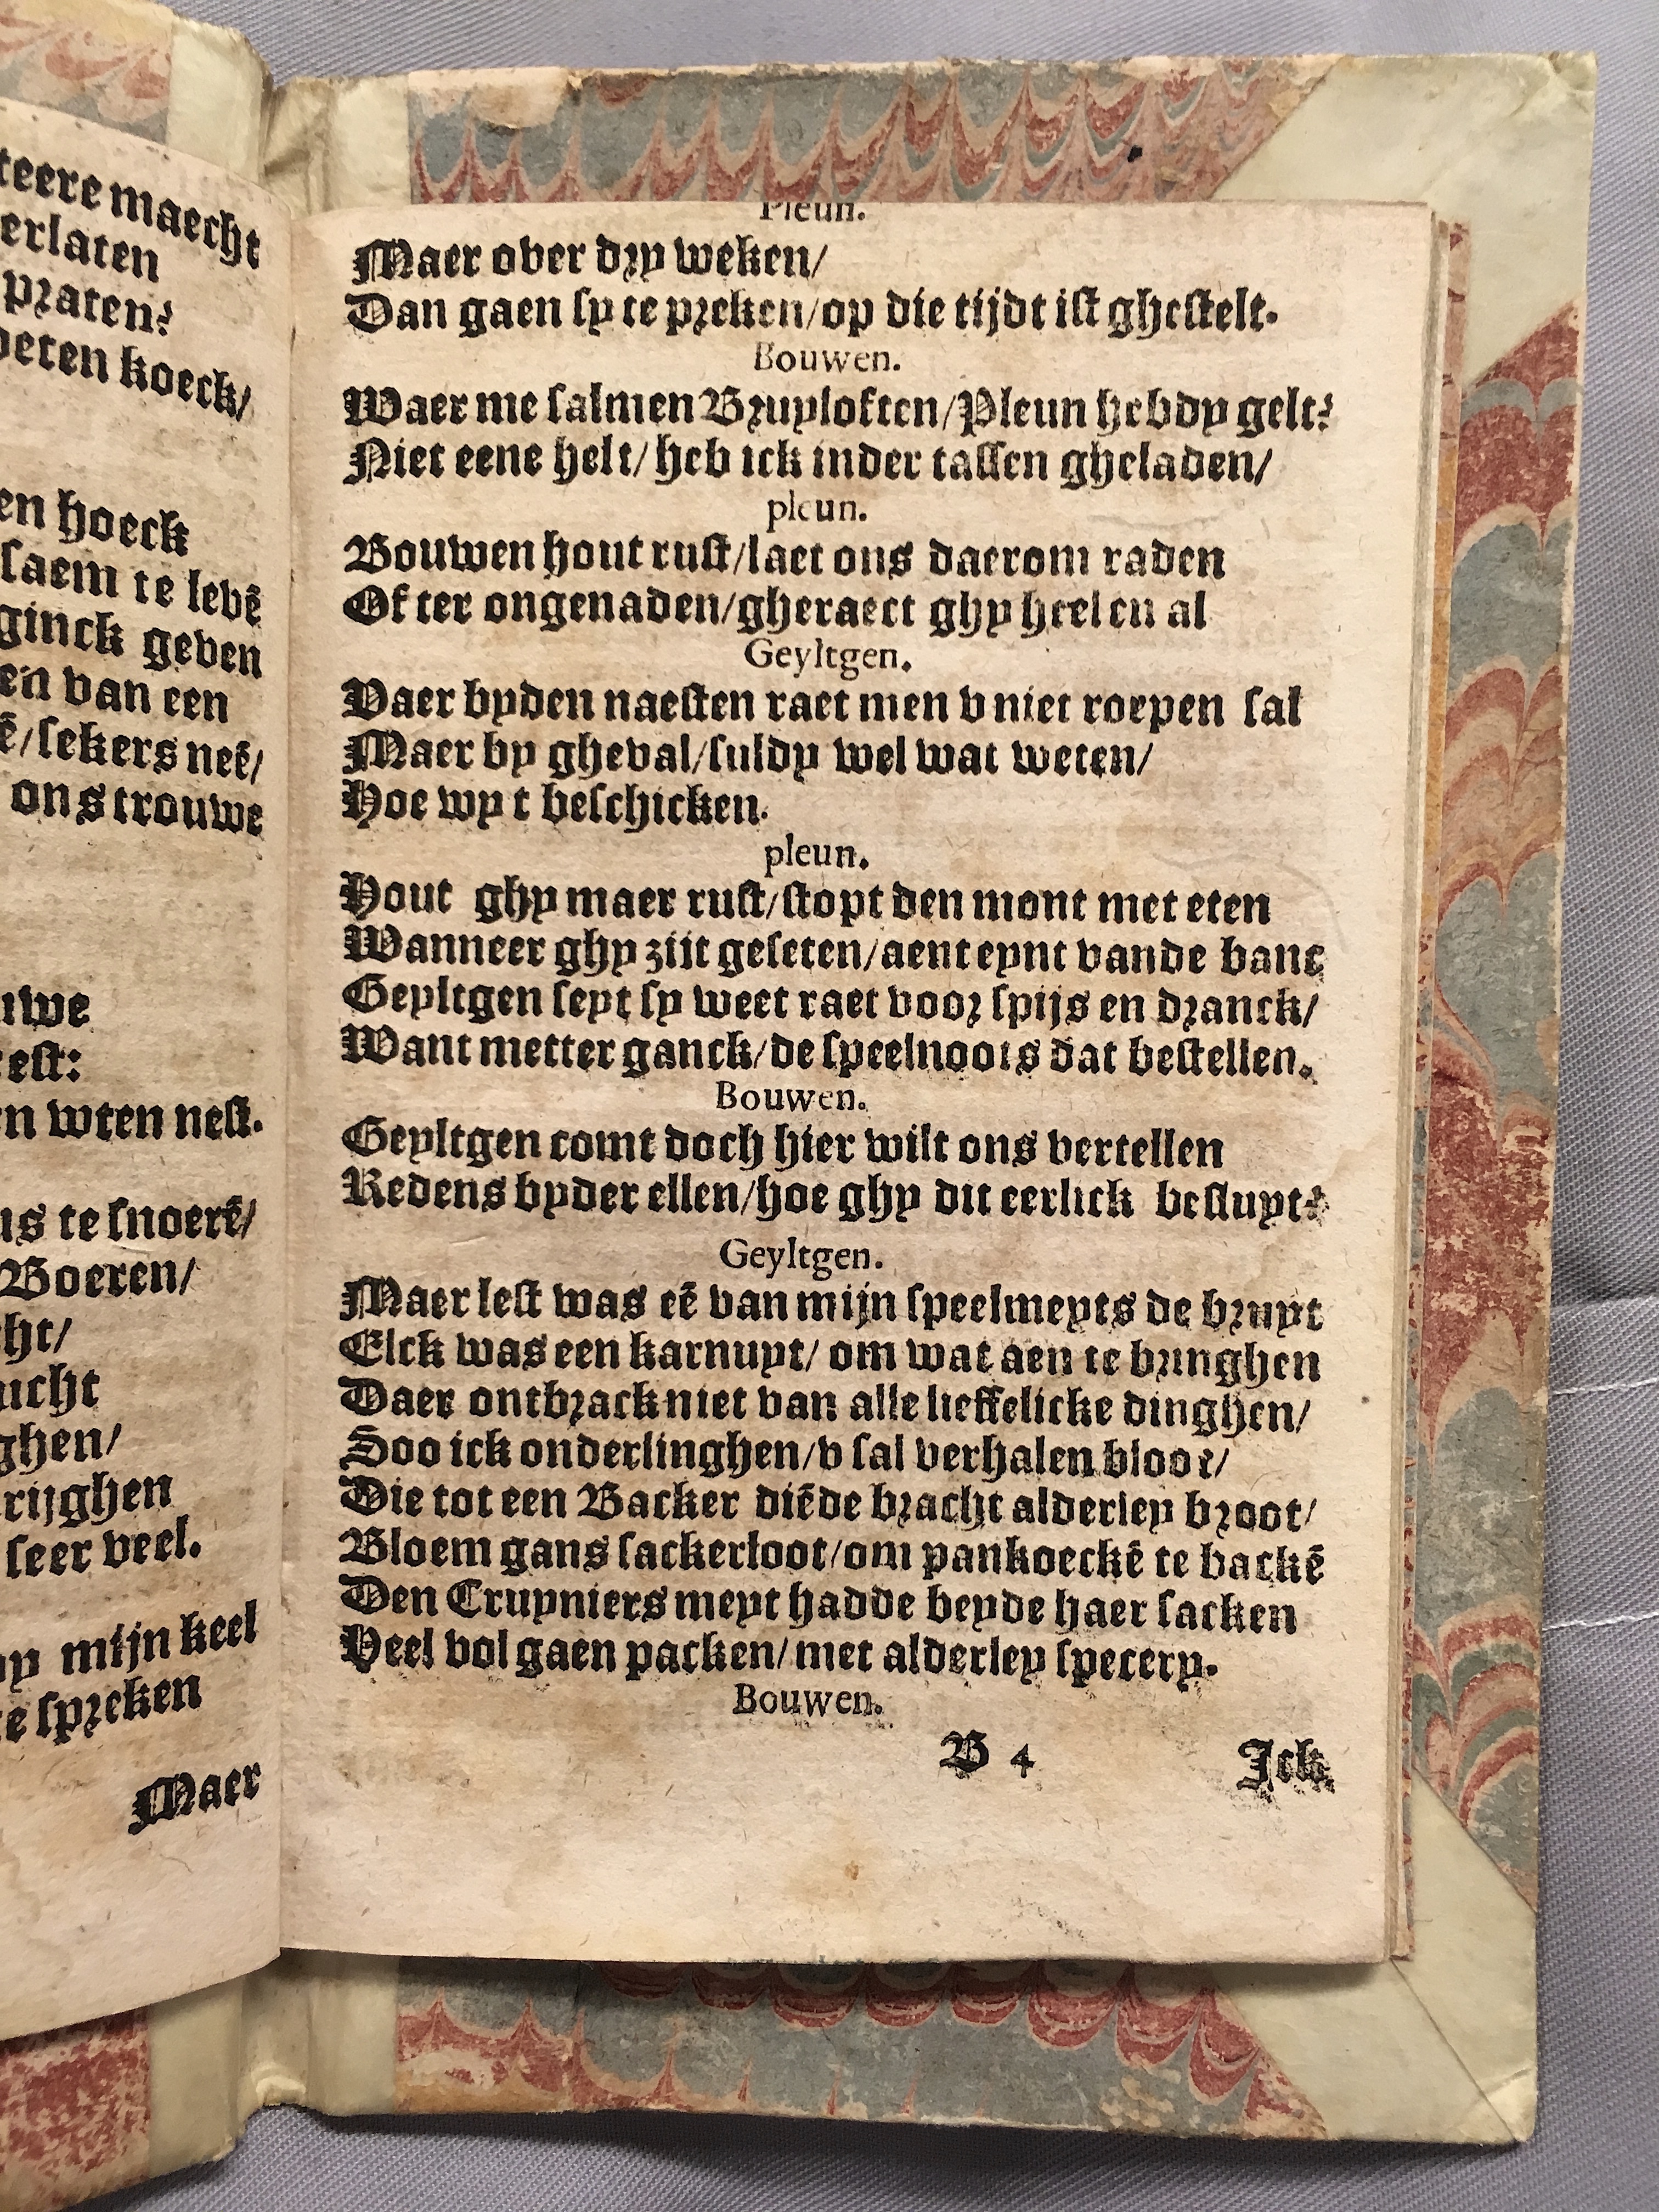 teere maecht
erlaten
praten?
oeten koeck/
en hoeck
saem te levē
ginck geven
en van een
ē/sekers neē/
ons trouwe
uwe
rest:
n wten nest.
us te snoerē/
Boeren/
cht/
ucht
ghen/
rijghen
seer veel.
mijn keel
te spreken
Maer
Pleun.
Maer over dry weken/
Dan gaen sy te preken/op die tijdt ist ghestelt.
Bouwen.
Waer me salmen Bruyloften/Pleun hebdy gelt?
Niet eene helt/ heb ick inder tassen gheladen/
pleun.
Bouwen hout rust/laet ons daerom raden
Of ter ongenaden/gheraect ghy heel en al
Geyltgen.
Vaer byden naesten raet men v niet roepen sal
Maer by gheval/suldy wel wat weten/
Hoe wy t beschicken.
pleun.
Hout ghy maer rust/stopt den mont met eten
Wanneer ghy zijt geseten/aent eynt vande banc
Geyltgen seyt sy weet raet voor spijs en dranck/
Want metter ganck/de speelnoots dat bestellen.
Bouwen.
Geyltgen comt doch hier wilt ons vertellen
Redens byder ellen/hoe ghy dit eerlick besluyt?
Geyltgen.
Maer lest was eē van mijn speelmeyts de bruyt
Elck was een karnuyt/ om wat aen te bringhen
Daer ontbrack niet van alle lieffelicke dinghen/
Soo ick onderlinghen/v sal verhalen bloot/
Die tot een Backer diēde bracht alderley broot/
Bloem gans sackerloot/om pankoeckē te backē
Den Cruyniers meyt hadde beyde haer sacken
Veel vol gaen packen/met alderley specery.
Bouwen.
B 4
Ick